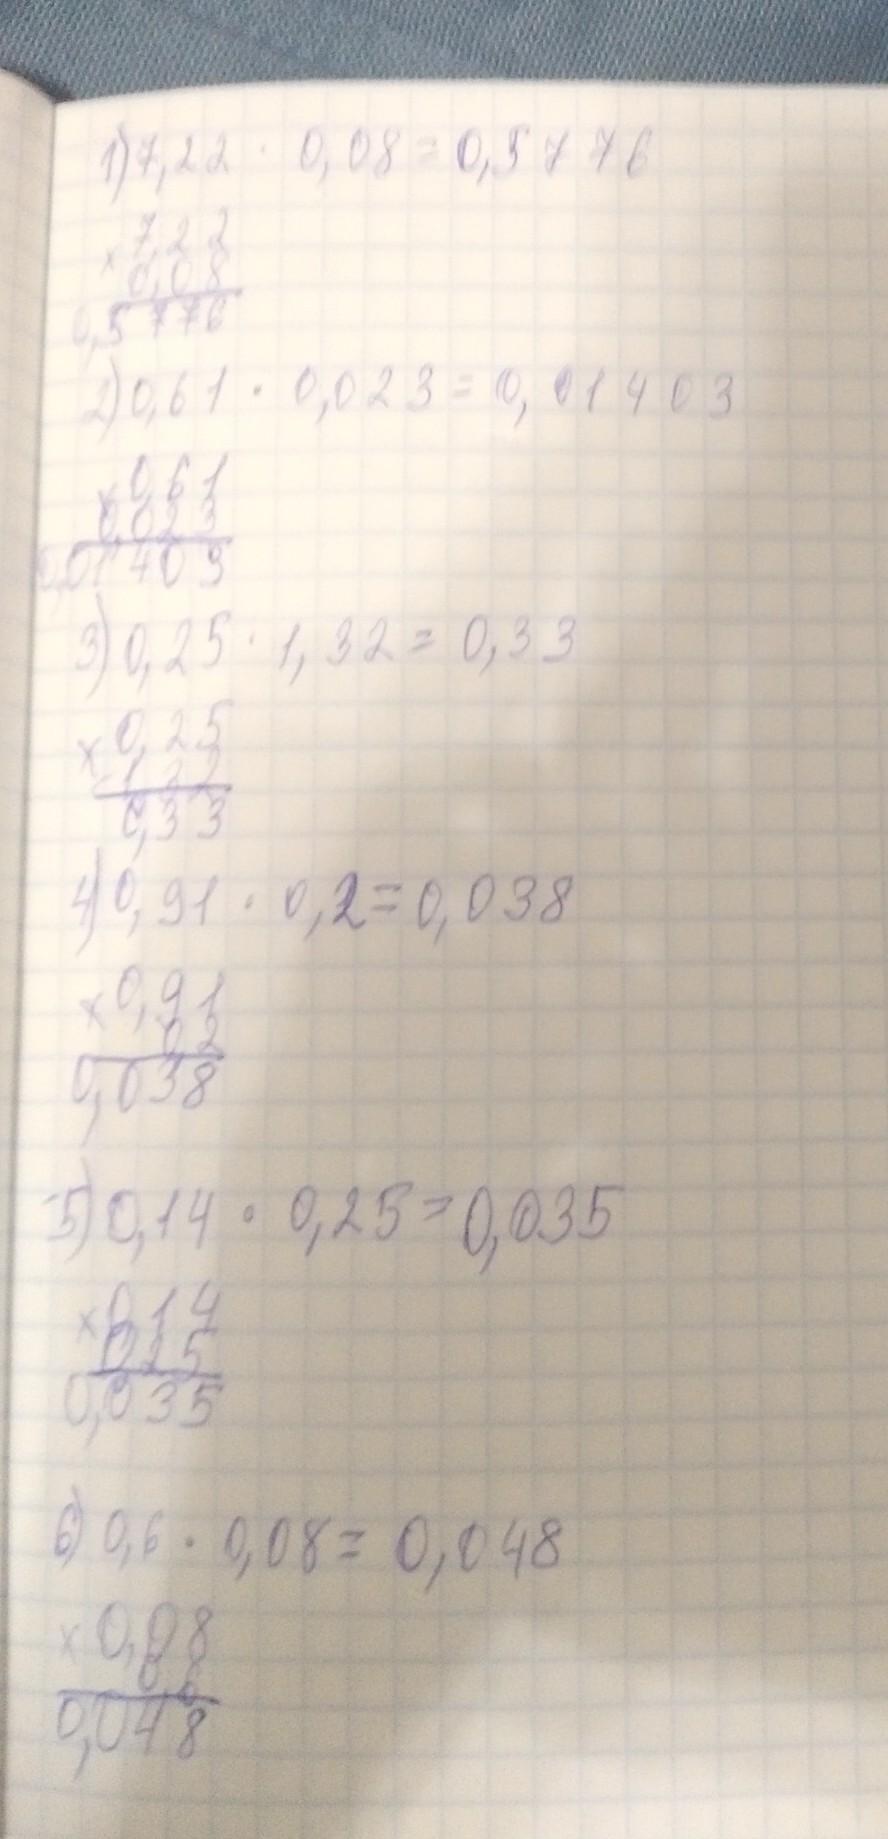 1) 7,22 · 0,08 = 0,5776
× 7,22
0,08
0,5776
2) 0,61 · 0,023 = 0,01403
× 0,61
0,023
0,01403
3) 0,25 · 1,32 = 0,33
× 0,25
0,33
4) 0,91 · 0,2 = 0,038
× 0,91
0,2
0,038
5) 0,14 · 0,25 = 0,035
× 0,14
0,25
0,035
6) 0,6 · 0,08 = 0,048
× 0,08
0,6
0,048